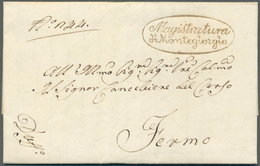 Magistratura
di Montegiorgio
All' Illmo Sigr. Sigr. Pre Colmo
Il Signor Cancelliere del Censo
Fermo